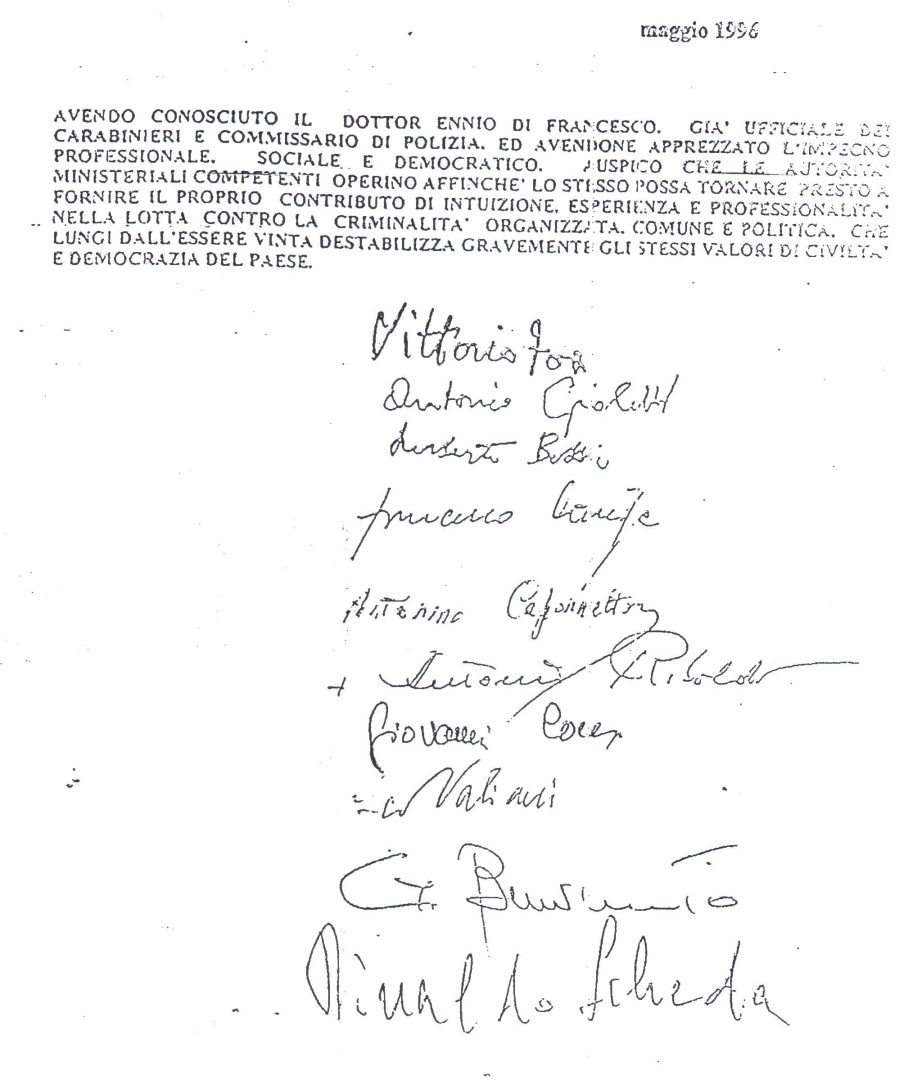 maggio 1996
AVENDO CONOSCIUTO IL DOTTOR ENNIO DI FRANCESCO, GIA' UFFICIALE DEI
CARABINIERI E COMMISSARIO DI POLIZIA, ED AVENDONE APPREZZATO L'IMPEGNO
PROFESSIONALE, SOCIALE E DEMOCRATICO, AUSPICO CHE LE AUTORITA'
MINISTERIALI COMPETENTI OPERINO AFFINCHE' LO STESSO POSSA TORNARE PRESTO A
FORNIRE IL PROPRIO CONTRIBUTO DI INTUIZIONE, ESPERIENZA E PROFESSIONALITA'
NELLA LOTTA CONTRO LA CRIMINALITA' ORGANIZZATA, COMUNE E POLITICA, CHE
LUNGI DALL'ESSERE VINTA DESTABILIZZA GRAVEMENTE GLI STESSI VALORI DI CIVILTA'
E DEMOCRAZIA DEL PAESE.
Vittorio Foa
Antonio Giolitti
Francesco
Antonino Caponnetto
+ Antonio Riboldi
Giovanni
Leo Valiani
G. Benvenuto
Rinaldo Scheda